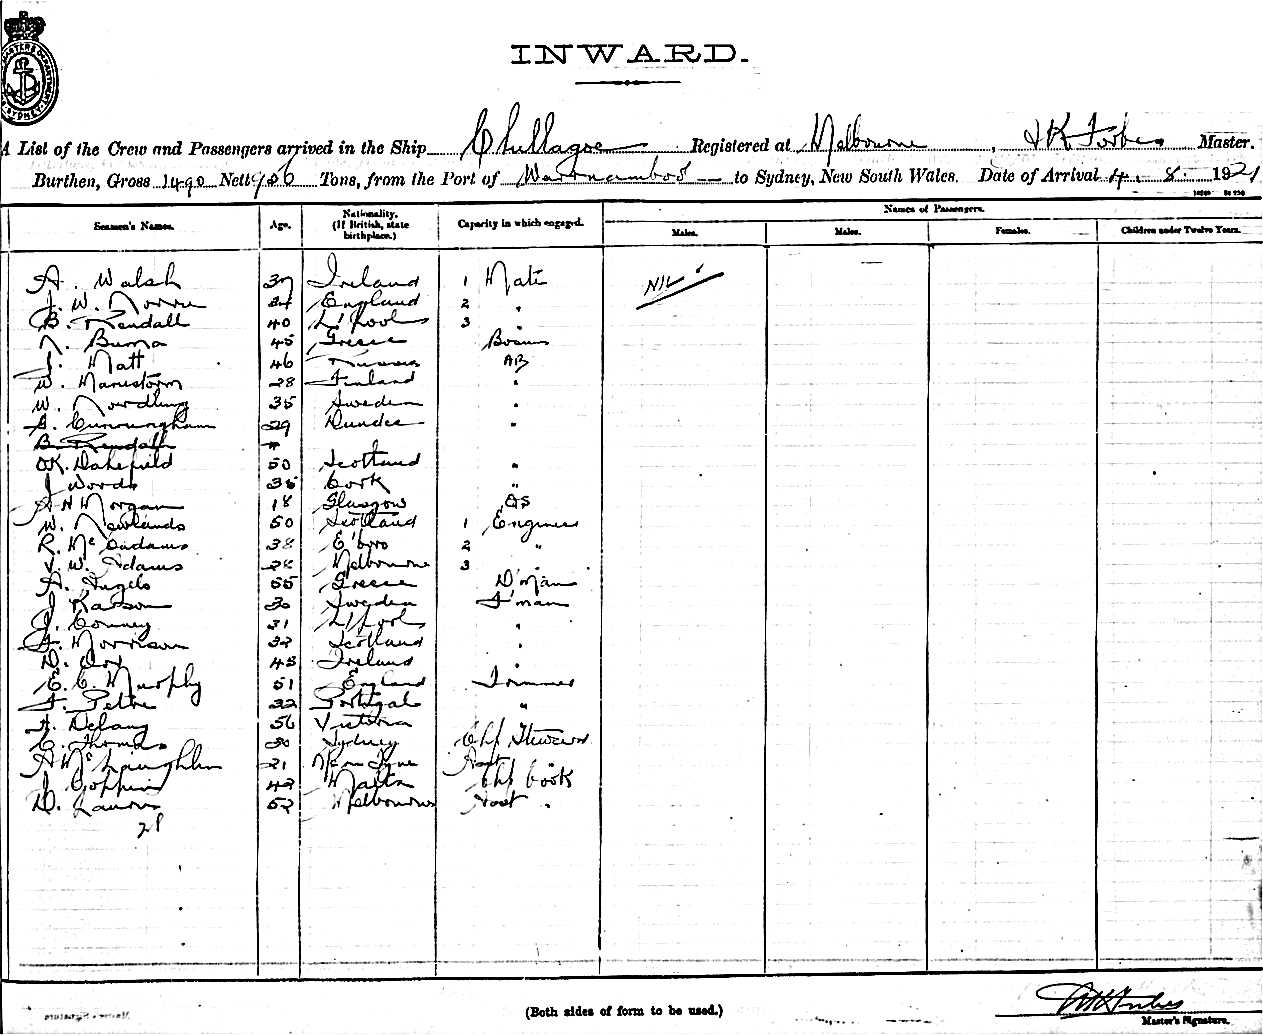 INWARD.
A List of the Crew and Passengers arrived in the Ship Chillagoe Registered at Melbourne, J K Forbes Master.
Burthen, Gross 1490 Nett 986 Tons, from the Port of Warrnambool to Sydney, New South Wales. Date of Arrival 4. 8. 1921
Seamen's Names. Age. Nationality. (If British, state birthplace.) Capacity in which engaged. Names of Passengers.
Males. Males. Females. Children under Twelve Years.
A. Walsh 37 Ireland 1 Mate NIL
J. W. Norrie England 2 "
B. Rendall 40 L'pool 3 "
N. Buma 45 Greece Bosun
J. Matt 46 Russia AB
W. 28 Finland "
W. Nordling 35 Sweden "
A. Cunningham 29 Dundee "
B. Rendall
Wakefield 50 Scotland "
J Woods 35 Cork "
A H Morgan 18 Glasgow OS
W. Newlands 50 Scotland 1 Engineer
R. Mc Cadams 38 E'boro 2 "
V. W. Adams 28 Melbourne 3 "
A. Angelo 55 Greece D'man
J Karson 30 Sweden F'man
J. Conney 31 L'pool "
A. Morrison 32 Scotland "
D. 43 Ireland "
E. C. Murphy 51 England Trimmer
F. Petre 32 Portugal "
A. Delany 56 Victoria
C. Thomas 30 Sydney Chf Steward
A Mc Laughlin 21 Asst "
J Coppin 42 Malta Chf Cook
D. 52 Melbourne Asst "
28
(Both sides of form to be used.)
JK Forbes
Master's Signature.